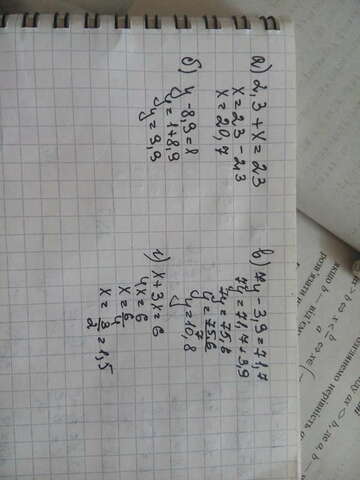 а) 2,3 + x = 23
x = 23 - 2,3
x = 20,7
б) y - 8,9 = 1
y = 1 + 8,9
y = 9,9
в) 7y - 3,9 = 71,7
7y = 71,7 + 3,9
7y = 75,6
y = 75,6/7
y = 10,8
г) x + 3x = 6
4x = 6
x = 6/4
x = 3/2 = 1,5
якщо b —
нерівність